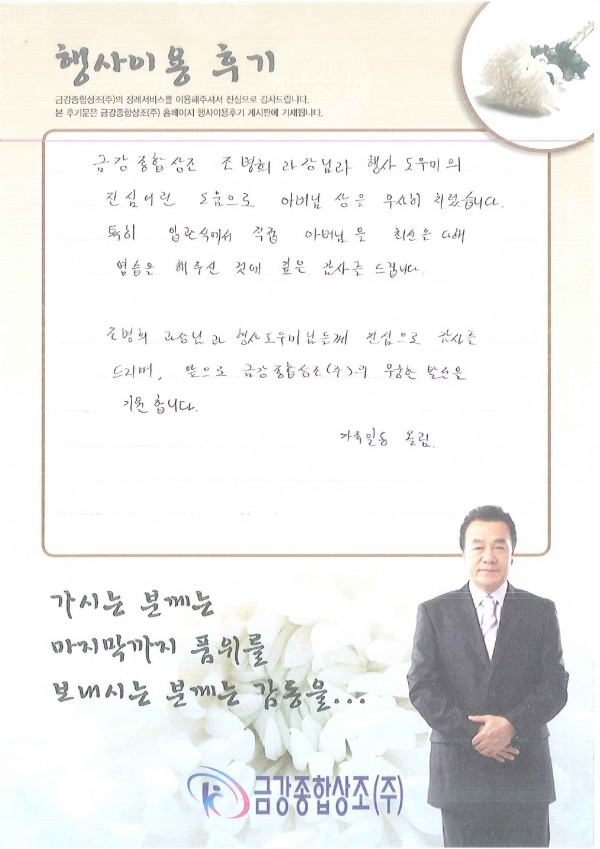 행사이용 후기
금강종합상조(주)의 장례서비스를 이용해주셔서 진심으로 감사드립니다.
본 후기문은 금강종합상조(주) 홈페이지 행사이용후기 게시판에 기재됩니다.
금강종합상조 조병희 과장님과 행사 도우미의
진심어린 도움으로 아버님 상을 무사히 치렀습니다.
특히 입관식에서 직접 아버님을 최선을 다해
염습을 해주신 것에 깊은 감사를 드립니다.
조병희 과장님과 행사도우미님들께 진심으로 감사를
드리며, 앞으로 금강종합상조(주)의 무궁한 발전을
기원합니다.
가족일동 올림.
가시는 분께는
마지막까지 품위를
보내시는 분께는 감동을...
금강종합상조(주)